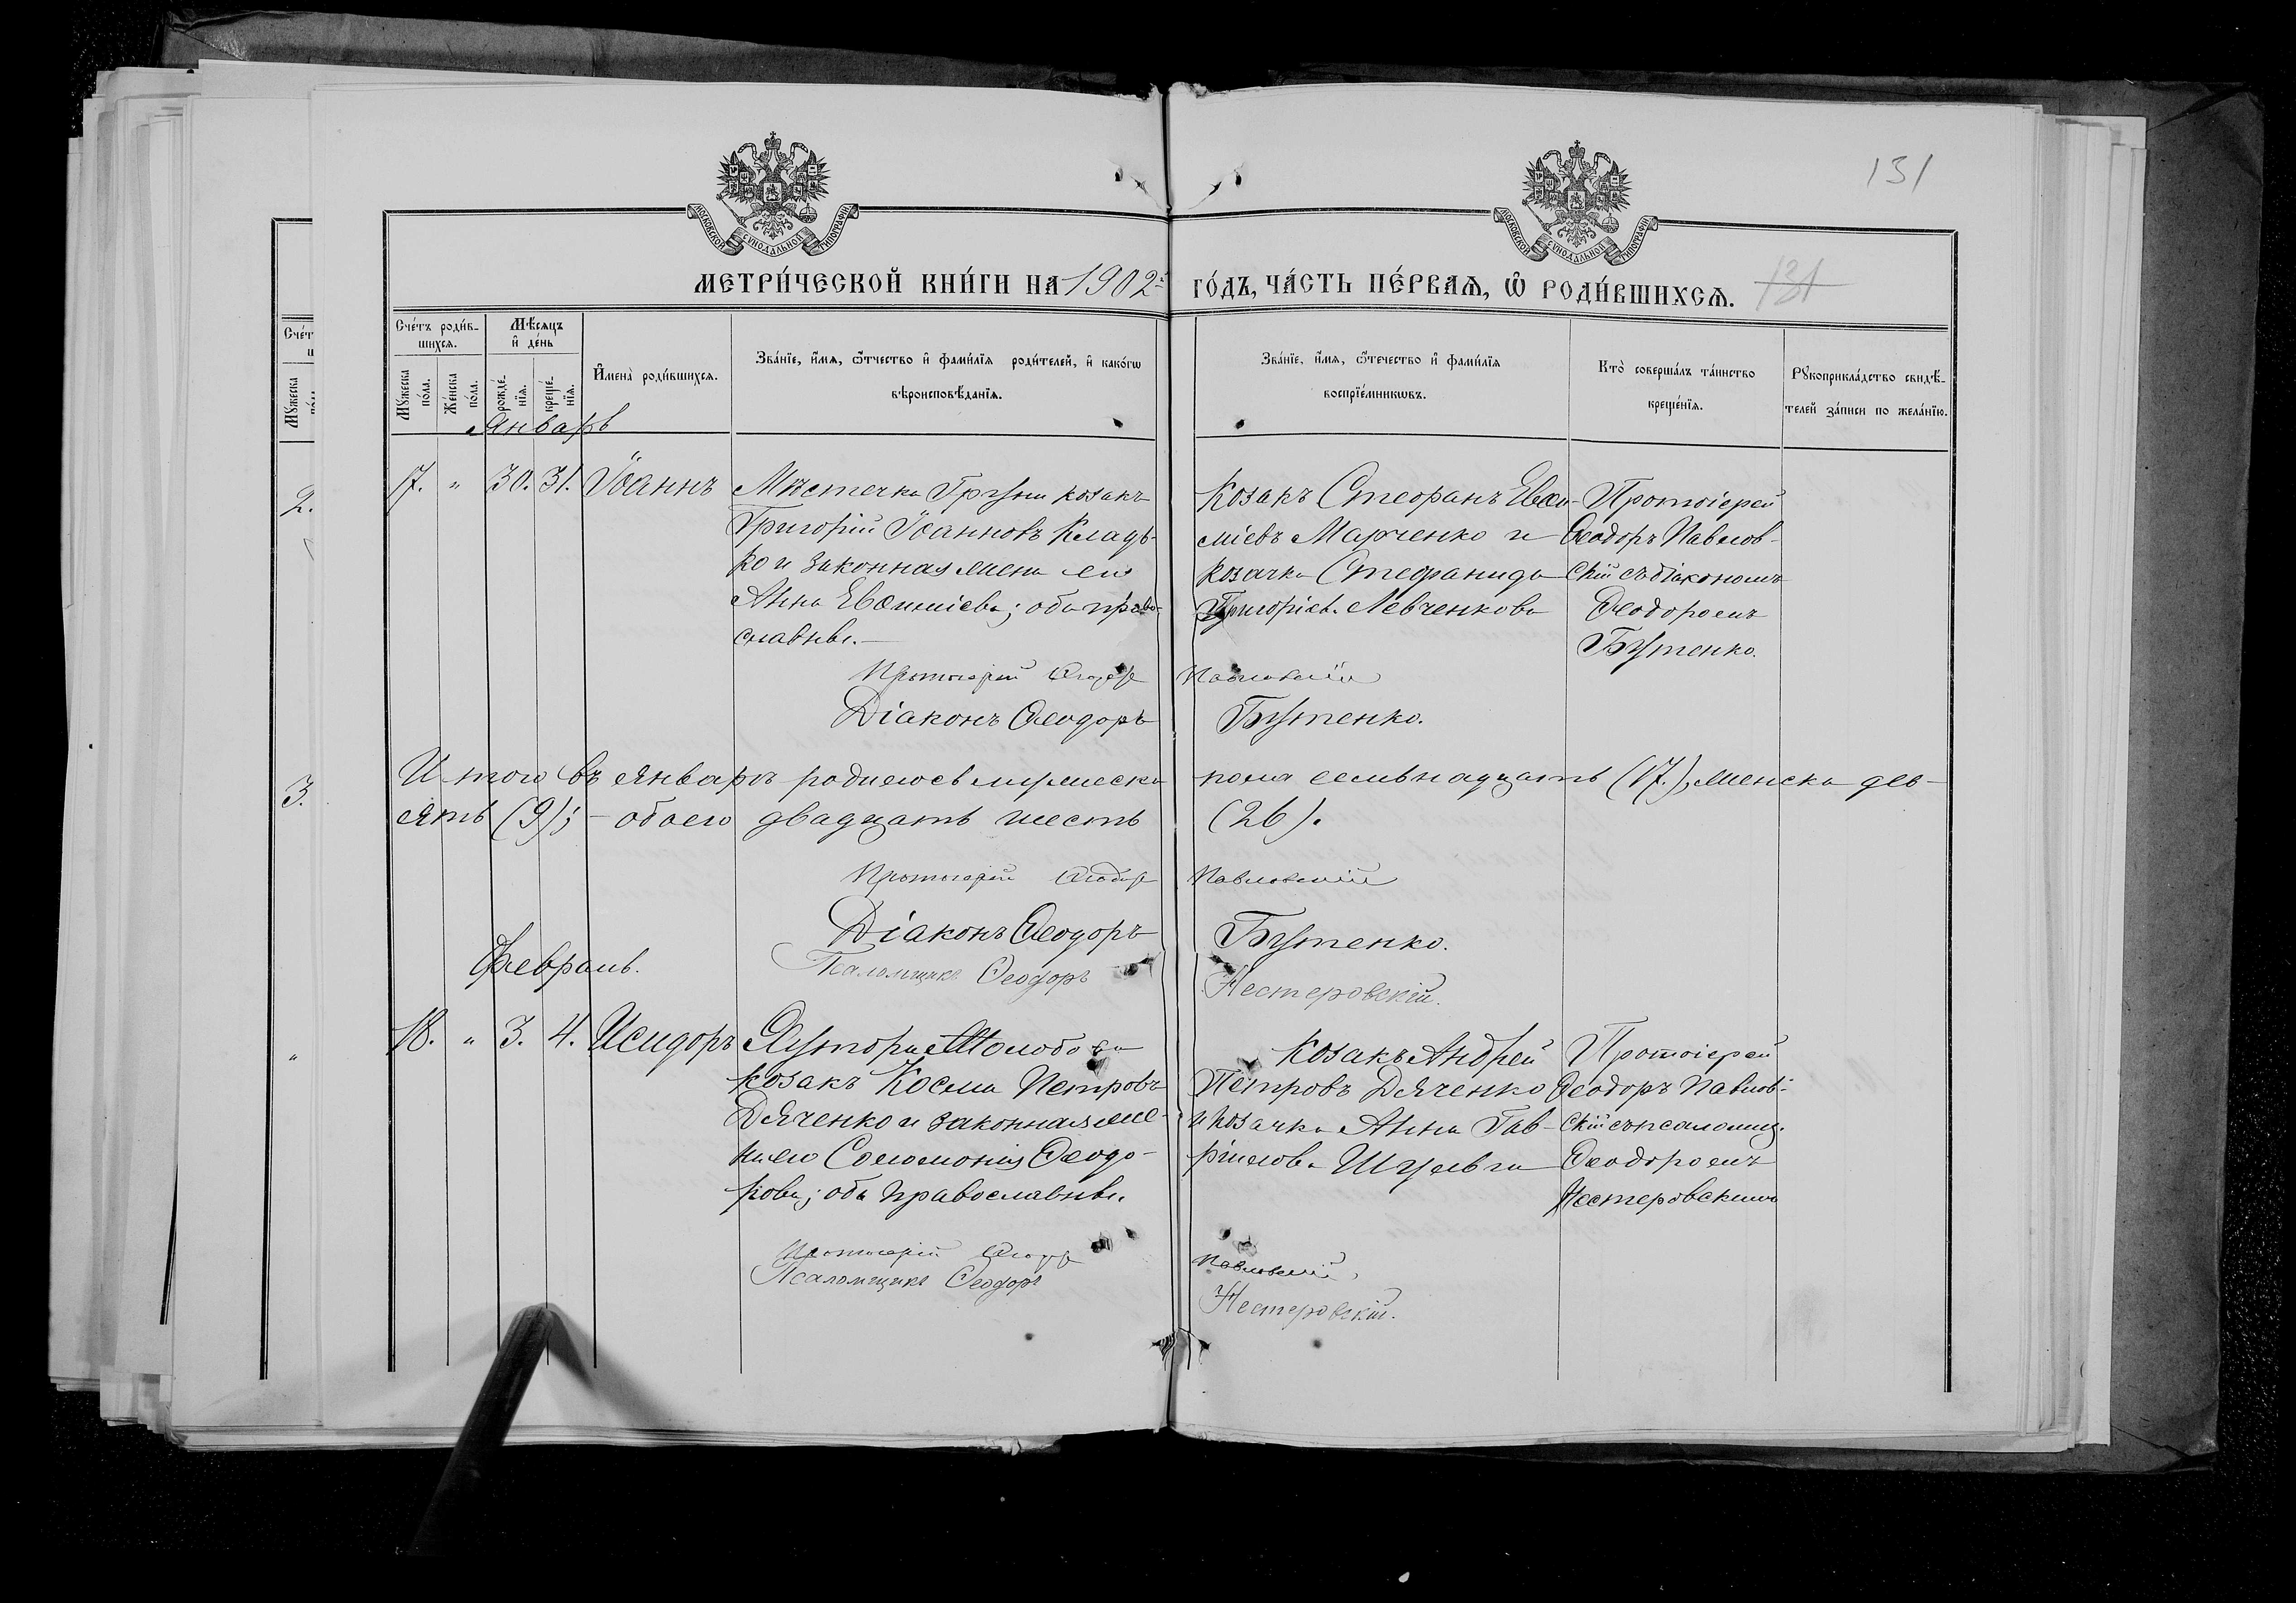 131
МОСКОВСКОЙ СѴНОДАЛЬНОЙ ТИПОГРАФІИ
МОСКОВСКОЙ СѴНОДАЛЬНОЙ ТИПОГРАФІИ
МЕТРИ́ЧЕСКОЙ КНИ́ГИ НА 1902й ГО́ДЪ, ЧА́СТЬ ПЕ́РВАѦ, Ѡ҆ РОДИ́ВШИХСѦ.
131
Сче́тъ роди́в-
шихся.
Мужеска по́ла.
Же́нска по́ла.
Мѣ́сяцъ
и҆ де́нь
рожде́-нїя.
креще́-нїя.
И҆мена̀ роди́вшихся.
Зва́нїе, и҆́мя, ѻ҆́тчество и҆ фами́лїя родителей, и҆ како́гѡ
вѣроисповѣ́данїя.
Зва́нїе, и҆́мя, ѻ҆́течество и҆ фами́лїя
воспрїе́мникѡвъ.
Кто̀ соверша́лъ та́инство
креще́нїя.
Рꙋкоприкла́дство свидѣ́-
телей за́писи по жела́нїю.
Январь
17. " 30. 31. Іоаннъ
Мѣстечка Груни козакъ
Григорій Іоанновъ Кладь-
ко и законная жена его
Анна Евѳиміева; оба право-
славны.
Козакъ Стефанъ Евѳи-
міевъ Марченко и
козачка Стефанида
Григоріева Левченкова
Протоіерей
Ѳеодоръ Павлов-
скій съ діакономъ
Ѳеодоромъ
Бутенко.
Протоіерей Ѳеодоръ Павловскій
Діаконъ Ѳеодоръ Бутенко.
Итого въ Январѣ родилось мужеска пола семьнадцать (17.), женска дев-
ять (9); - обоего двадцать шесть (26).
Протоіерей Ѳеодоръ Павловскій
Діаконъ Ѳеодоръ Бутенко.
Псаломщикъ Ѳеодоръ Нестеровскій.
Февраль.
18. " 3. 4. Исидоръ
козакъ Косма Петровъ
Дяченко и законная же-
на его Соломонія Ѳеодо-
рова; оба православны.
Козакъ Андрей
Петровъ Дяченко
и козачка Анна Гав-
ріилова Шульга
Протоіерей
Ѳеодоръ Павлов-
скій съ псаломщ.
Ѳеодоромъ
Нестеровскимъ
Протоіерей Ѳеодоръ Павловскій
Псаломщикъ Ѳеодоръ Нестеровскій.
Сче́т
Мужеска
2.
3.
"